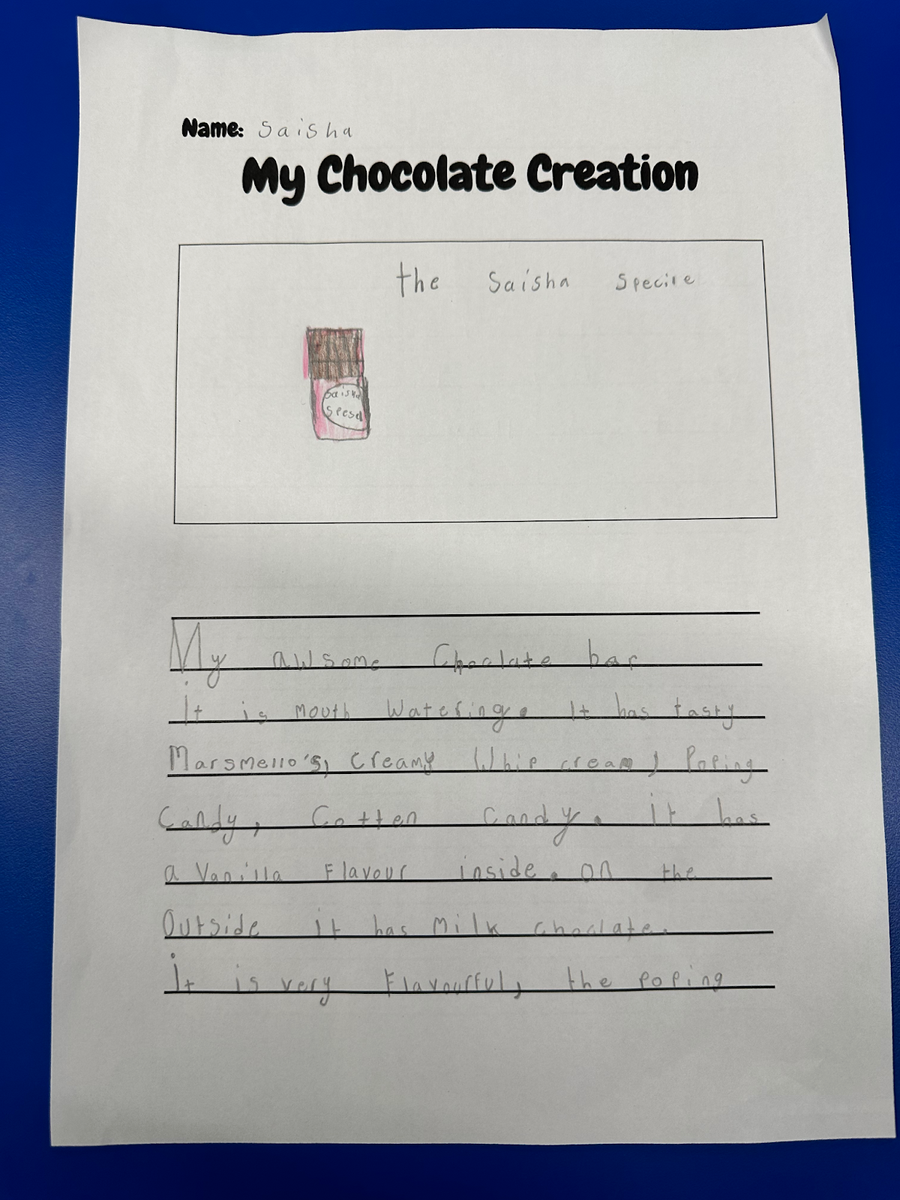 Name: Saisha
My Chocolate Creation
the Saisha Specile
Saisha
Specel
My awsome Choclate bar
It is mouth watering. It has tasty
Marsmello's, creamy Whip cream, Poping
Candy, Cotten candy. it has
a Vanilla Flavour inside. on the
Outside it has Milk choclate.
It is very Flavourful, the poping